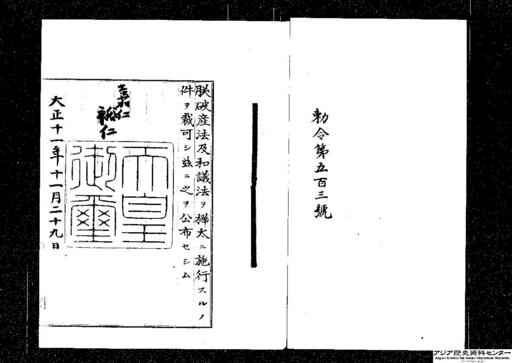 勅令第五百三號
朕破産法及和議法ヲ樺太ニ施行スルノ
件ヲ裁可シ茲ニ之ヲ公布セシム
嘉仁
裕仁
天皇
御璽
大正十一年十一月二十九日
アジア歴史資料センター
Japan Center for Asian Historical Records